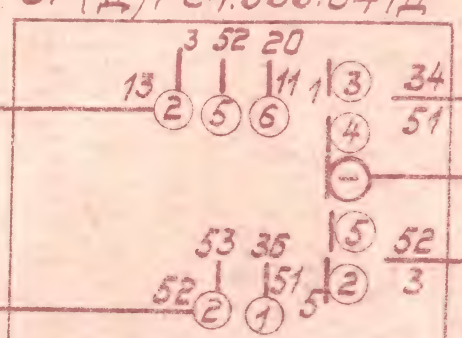 3 52 20
13 2 5 6 11 1 3 34
51
4
5
53 35 52
52 2 1 51 5 2 3